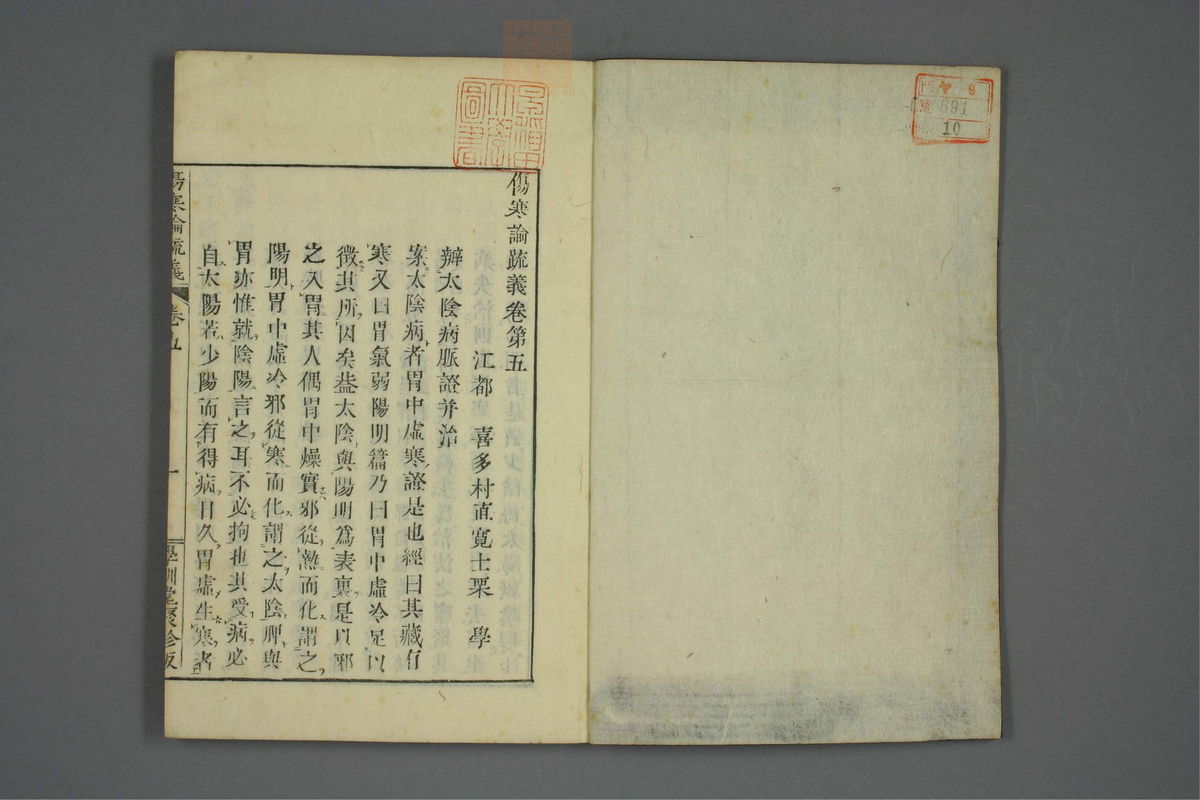 9
891
10
傷寒論疏義卷第五
江都 喜多村直寬士栗 學
辯太陰病脈證并治
案太陰病者胃中虛寒證是也經曰其藏有
寒又曰胃氣弱陽明篇乃曰胃中虛冷足以
徵其所因矣葢太陰與陽明爲表裏是以邪
之入胃其人偶胃中燥實邪從熱而化謂之
陽明胃中虛冷邪從寒而化謂之太陰脾與
胃亦惟就陰陽言之耳不必拘也其受病必
自太陽若少陽而有得病日久胃虛生寒者
傷寒論疏義 卷五 一 學訓堂聚珍版